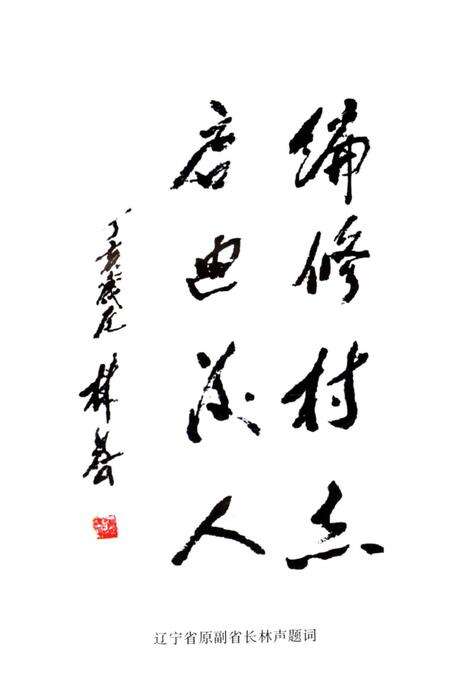 编修村志
启迪後人
丁亥岁尾 林声
辽宁省原副省长林声题词